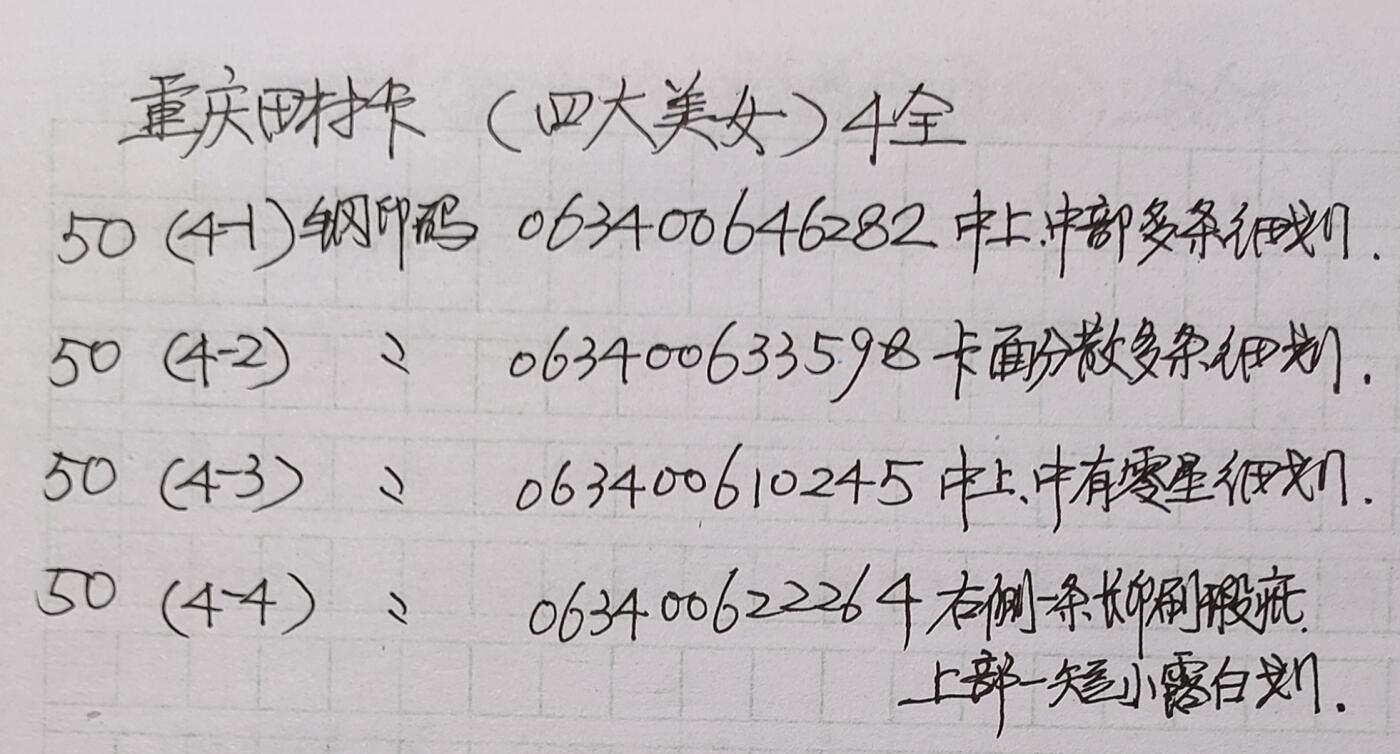 重庆田村卡 (四大美女) 4全
50 (4-1) 钢印码 063400646282 中上、中部多条细划.
50 (4-2) 〃 063400633598 卡面分散多条细划.
50 (4-3) 〃 063400610245 中上、中有零星细划.
50 (4-4) 〃 063400622264 右侧一条长印刷瑕疵.
上部一短小露白划.